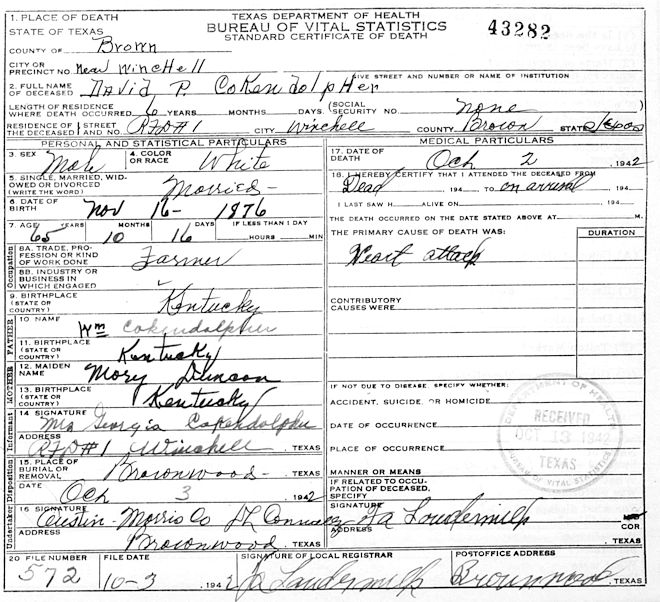 TEXAS DEPARTMENT OF HEALTH
BUREAU OF VITAL STATISTICS
STANDARD CERTIFICATE OF DEATH
43282
1. PLACE OF DEATH
STATE OF TEXAS
COUNTY OF Brown
CITY OR PRECINCT NO. Near Winchell
GIVE STREET AND NUMBER OR NAME OF INSTITUTION
2. FULL NAME OF DECEASED David P. Cokendolpher
LENGTH OF RESIDENCE WHERE DEATH OCCURRED 6 YEARS MONTHS DAYS (SOCIAL SECURITY NO. none )
RESIDENCE OF THE DECEASED STREET AND NO. RFD#1 CITY Winchell COUNTY Brown STATE Texas
PERSONAL AND STATISTICAL PARTICULARS
3. SEX Male 4. COLOR OR RACE White
5. SINGLE, MARRIED, WIDOWED OR DIVORCED (WRITE THE WORD) Married
6. DATE OF BIRTH Nov 16 - 1876
7. AGE 65 YEARS 10 MONTHS 16 DAYS IF LESS THAN 1 DAY HOURS MIN
Occupation
8A. TRADE, PROFESSION OR KIND OF WORK DONE Farmer
8B. INDUSTRY OR BUSINESS IN WHICH ENGAGED
9. BIRTHPLACE (STATE OR COUNTRY) Kentucky
FATHER
10. NAME Wm Cokendolpher
11. BIRTHPLACE (STATE OR COUNTRY) Kentucky
MOTHER
12. MAIDEN NAME Mary Duncan
13. BIRTHPLACE (STATE OR COUNTRY) Kentucky
Informant
14 SIGNATURE Mrs Georgia Cokendolpher
ADDRESS RFD#1 Winchell, TEXAS
Disposition
15. PLACE OF BURIAL OR REMOVAL Brownwood - TEXAS
DATE Oct 3 1942
Undertaker
16 SIGNATURE Austin-Morris Co
ADDRESS Brownwood, TEXAS
MEDICAL PARTICULARS
17. DATE OF DEATH Oct 2 , 1942
18. I HEREBY CERTIFY THAT I ATTENDED THE DECEASED FROM
Dead 194 TO on arrival 194
I LAST SAW H ALIVE ON 194
THE DEATH OCCURRED ON THE DATE STATED ABOVE AT M.
THE PRIMARY CAUSE OF DEATH WAS: DURATION
Heart attack
CONTRIBUTORY CAUSES WERE
IF NOT DUE TO DISEASE, SPECIFY WHETHER:
ACCIDENT, SUICIDE, OR HOMICIDE
DATE OF OCCURRENCE
PLACE OF OCCURRENCE
MANNER OR MEANS
IF RELATED TO OCCUPATION OF DECEASED, SPECIFY
SIGNATURE Ja Loudermilk
ADDRESS COR. TEXAS
DEPARTMENT OF HEALTH
RECEIVED
OCT 13 1942
TEXAS
BUREAU OF VITAL STATISTICS
20 FILE NUMBER 572 FILE DATE 10-3 , 1942 SIGNATURE OF LOCAL REGISTRAR Ja Loudermilk POSTOFFICE ADDRESS Brownwood, TEXAS